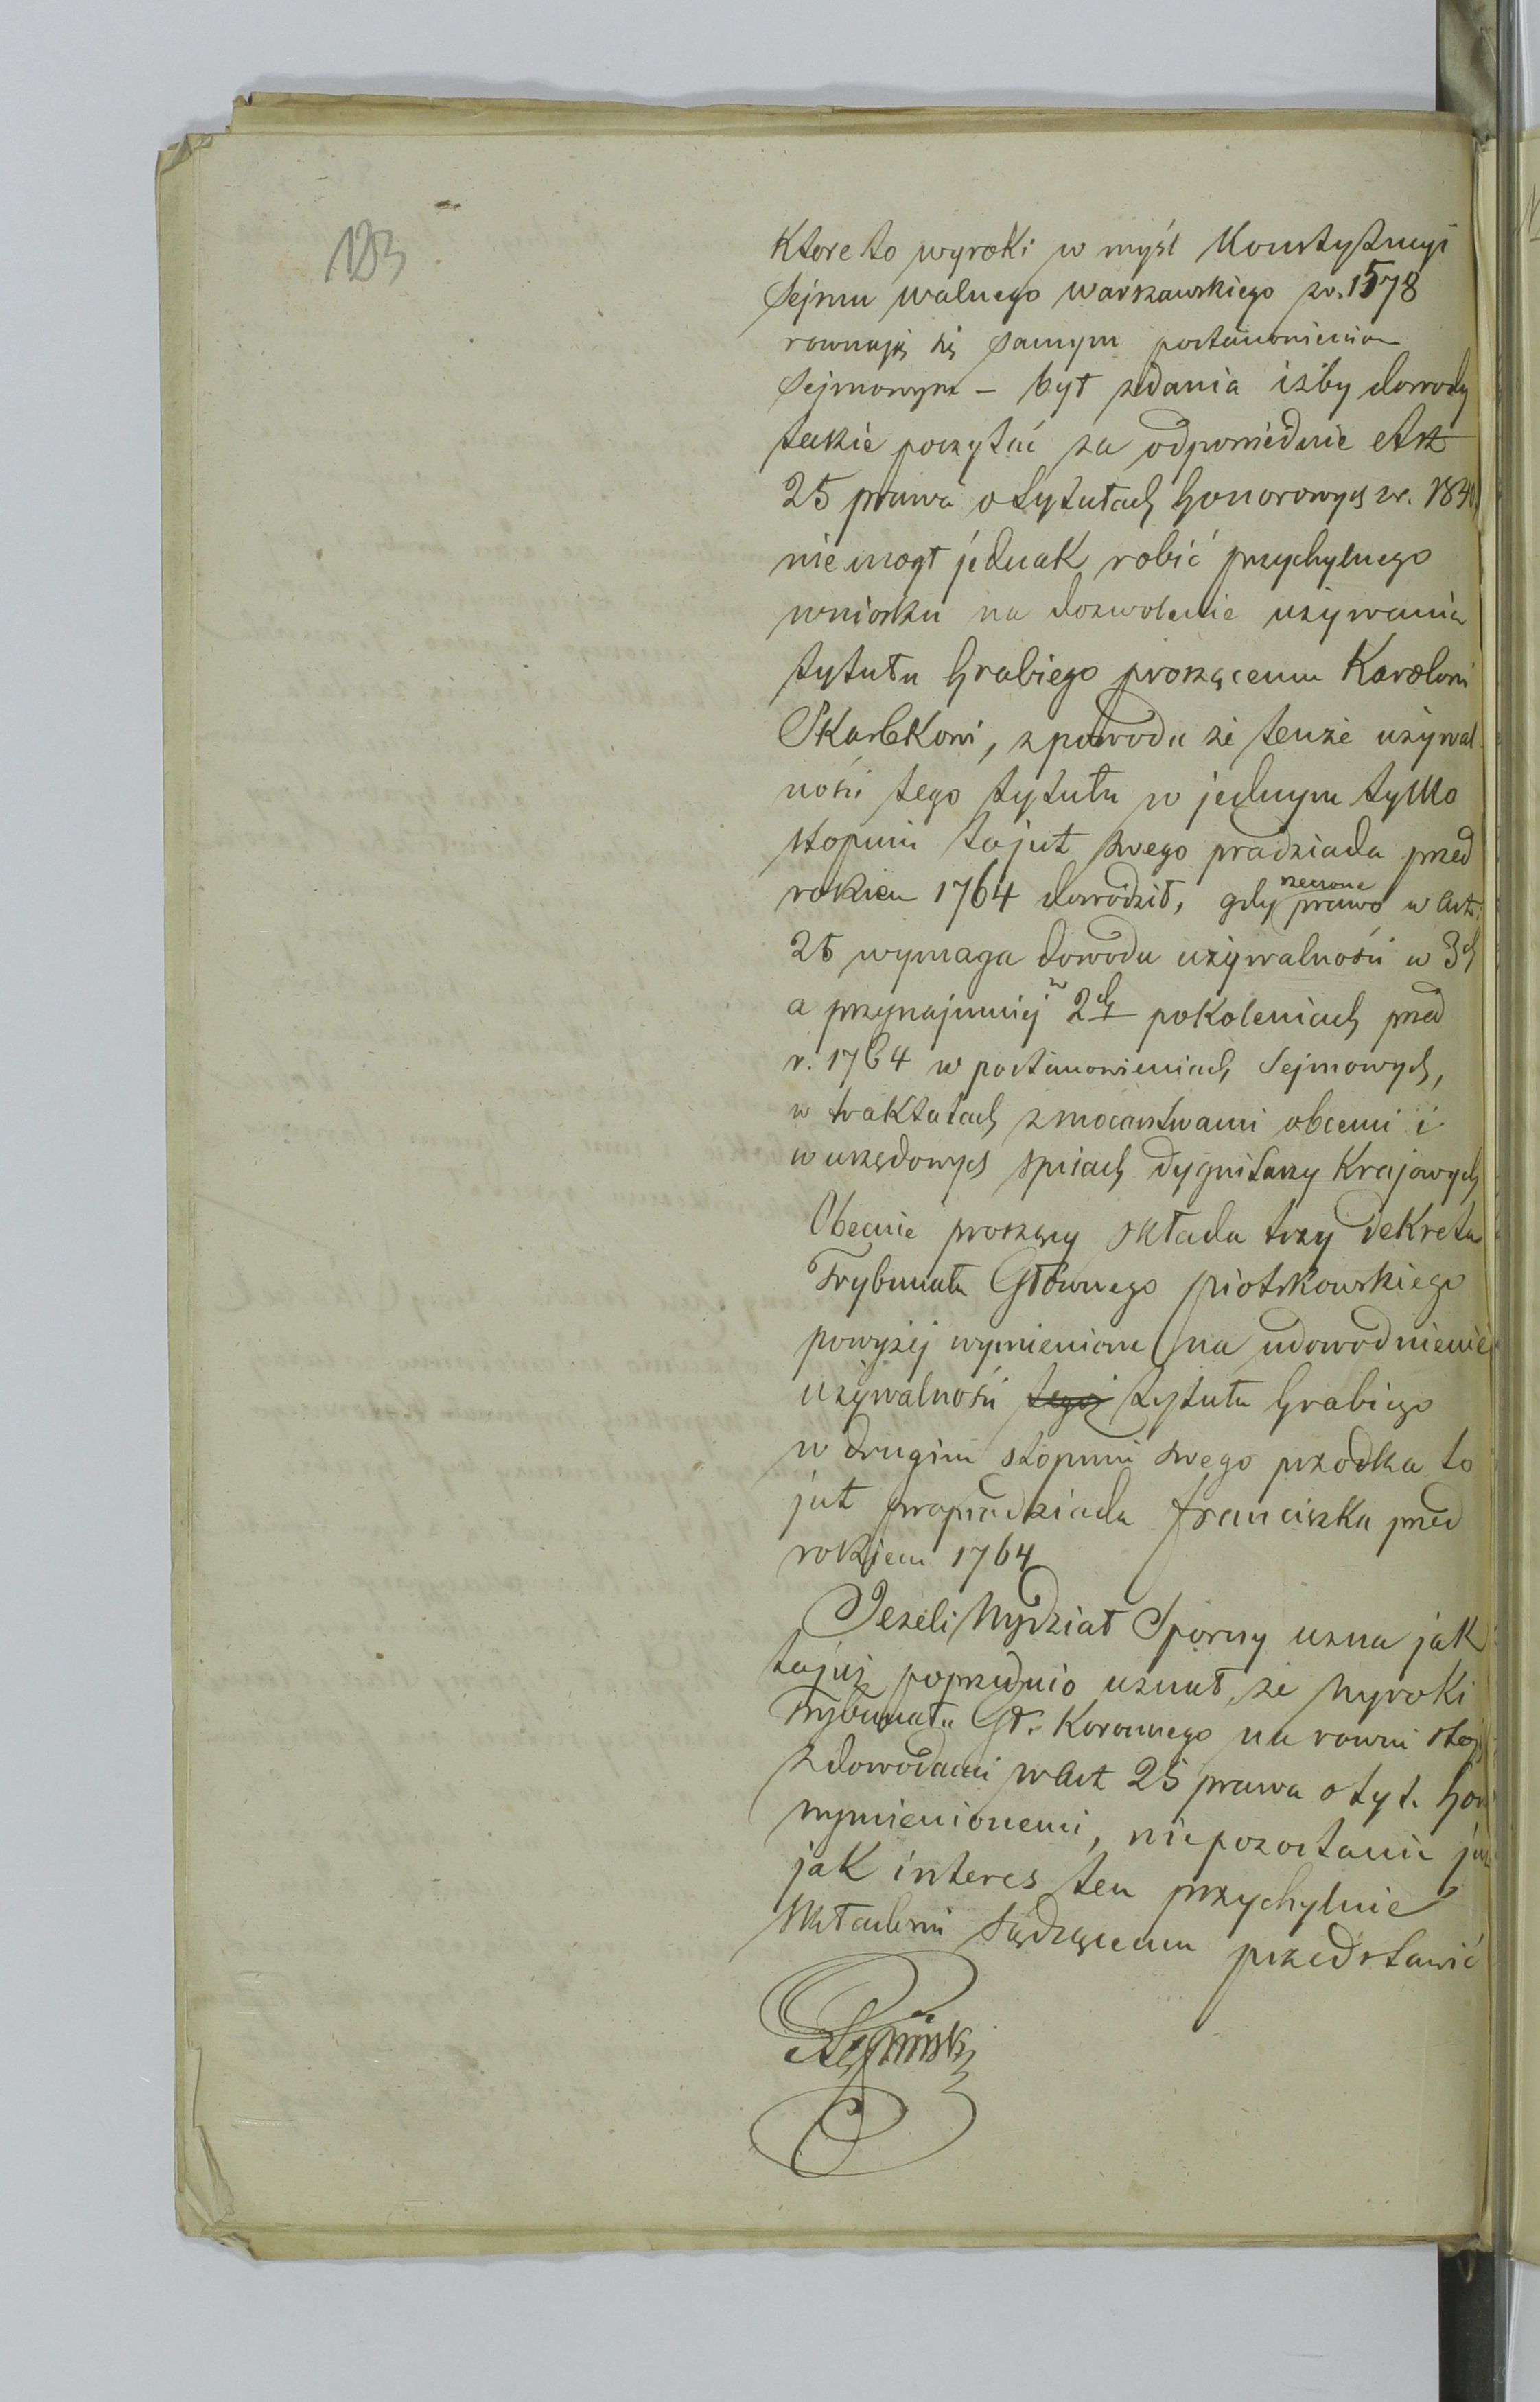 123
Ktore to wyroki w myśl Konstytucyi
Sejmu walnego warszawskiego zr. 1578
rownają się samym postanowieniom
Sejmowym – był zdania iżby dowody
takie poczytać za odpowiednie Art
25 prawa o tytułach honorowych zr. 1840
nie mogł jednak robić przychylnego
wniosku na dozwolenie używania
tytułu hrabiego proszącemu Karolowi
Skarbkowi, z powodu że tenże używal-
ności tego tytułu w jednym tylko
stopniu to jest swego pradziada przed
rokiem 1764 dowodził, gdy rzeczone prawo w Art.
25 wymaga dowodu używalności w 3ch
a przynajmniej w 2ch pokoleniach przed
r. 1764 w postanowieniach Sejmowych,
w traktatach z mocarstwami obcemi i
w urzędowych spisach dygnitarzy Krajowych
Obecnie proszący składa trzy dekreta
Trybunału Głównego piotrkowskiego
powyżej wymienione na udowodnienie
używalności tegoż tytułu hrabiego
w drugim stopniu swego przodka to
jest prapradziada franciszka przed
rokiem 1764
Jeżeli Wydział Sporny uzna jak
to już poprzednio uznał, że wyroki
Trybunału Gł. Koronnego na rowni stoją
z dowodami w Art 25 prawa o tyt. hon
wymienionemi, nie pozostanie
jak interes ten przychylnie
Składowi Sądzącemu przedstawić